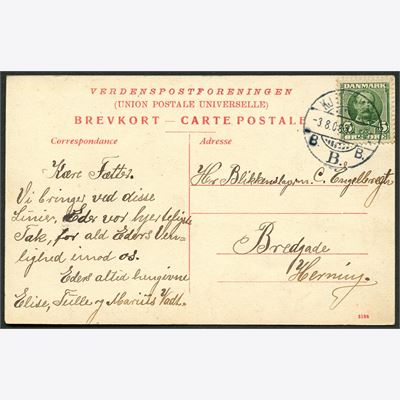 VERDENSPOSTFORENINGEN
(UNION POSTALE UNIVERSELLE)
BREVKORT — CARTE POSTALE
DANMARK
5 5
-3.8.08.
B. B.
B.
Correspondance
Kære Fætter.
Vi bringer ved disse
Linier, Eder vor hjerteligste
Tak, for al Eders Ven-
lighed imod os.
Eders altid hengivne
Elise, Tulle og
Adresse
Hr Blikkenslagerm. C. Engelbregt
Bredgade
Herning.